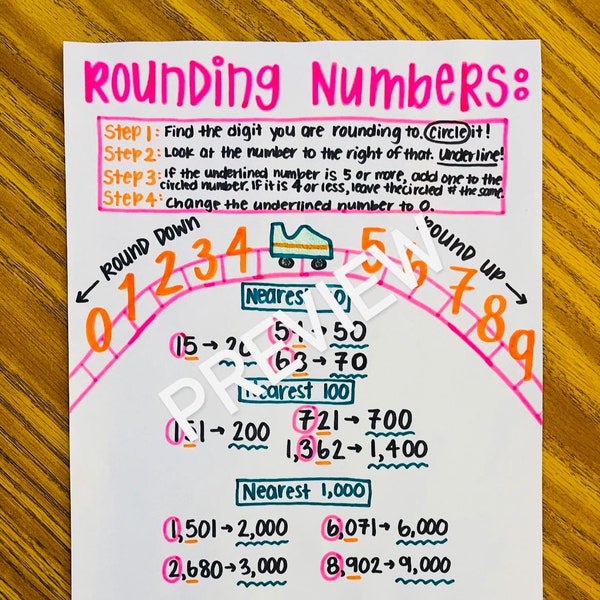 Rounding Numbers:
Step 1: Find the digit you are rounding to. Circle it!
Step 2: Look at the number to the right of that. Underline!
Step 3: If the underlined number is 5 or more, add one to the
circled number. If it is 4 or less, leave the circled # the same.
Step 4: Change the underlined number to 0.
← ROUND DOWN
ROUND UP →
0 1 2 3 4 5 6 7 8 9
Nearest 10
15 → 20
54 → 50
63 → 70
Nearest 100
151 → 200
721 → 700
1,362 → 1,400
Nearest 1,000
1,501 → 2,000
6,071 → 6,000
2,680 → 3,000
8,902 → 9,000
PREVIEW